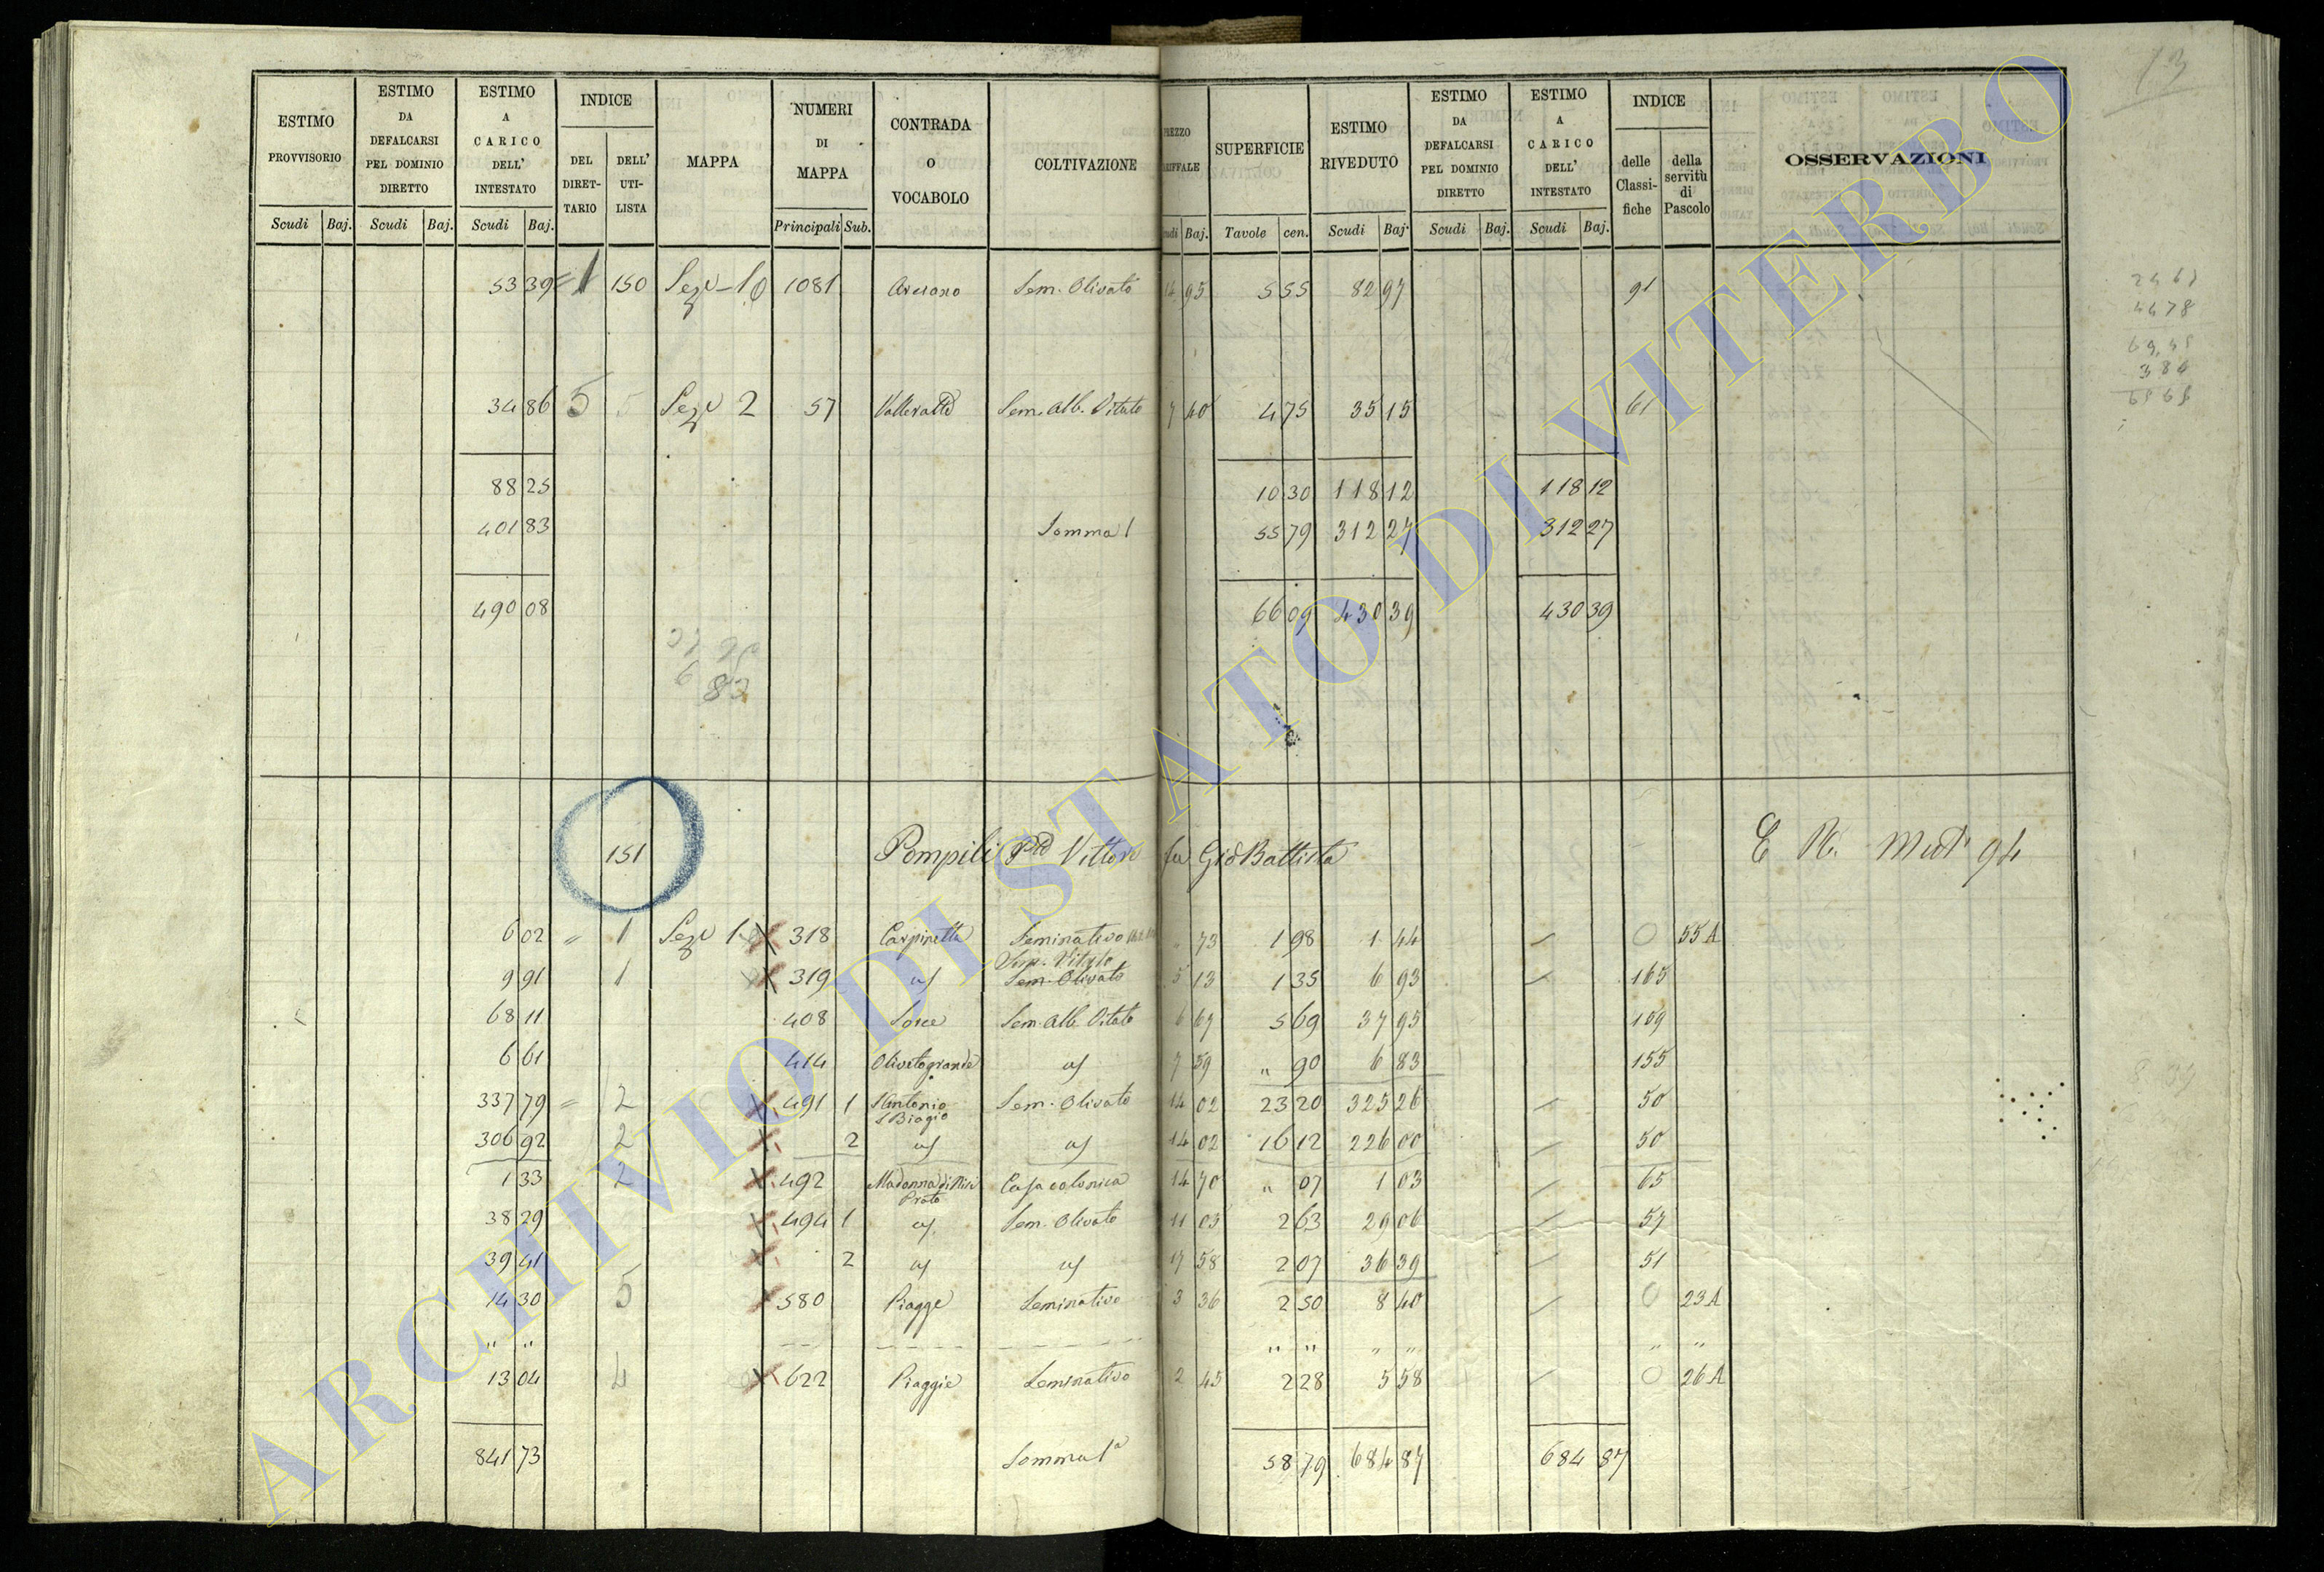 13
ESTIMO PROVVISORIO | ESTIMO DA DEFALCARSI PEL DOMINIO DIRETTO | ESTIMO A CARICO DELL' INTESTATO | INDICE | MAPPA | NUMERI DI MAPPA | CONTRADA O VOCABOLO | COLTIVAZIONE | SUPERFICIE | ESTIMO RIVEDUTO | ESTIMO DA DEFALCARSI PEL DOMINIO DIRETTO | ESTIMO A CARICO DELL' INTESTATO | INDICE | OSSERVAZIONI
DEL DIRET-TARIO | DELL' UTI-LISTA | delle Classi-fiche | della servitù di Pascolo
Scudi | Baj. | Scudi | Baj. | Scudi | Baj. | Principali | Sub. | Baj. | Tavole | cen. | Scudi | Baj. | Scudi | Baj. | Scudi | Baj.
53 39 1 150 Sez. 10 1081 Sem. Olivato 14 95 5 55 82 97 91
34 86 5 5 Sez. 2 57 Sem. Alb. Vitato 7 40 4 75 35 15 61
88 25 10 30 118 12 118 12
401 83 Somma 1 55 79 312 27 312 27
490 08 66 09 430 39 430 39
83
151 Pompili Vittori fu Gio Battista
6 02 " 1 Sez. 1 318 Carpinetta Seminativo " 73 1 98 1 44 0 55 A
Sem. Vitato
9 91 1 319 Sem. Olivato 5 13 1 35 6 93 165
68 11 408 Sem. Alb. Vitato 6 67 5 69 37 95 109
6 61 414 Olivetogrande 7 59 " 90 6 83 155
337 79 2 491 1 S Antonio Sem. Olivato 14 02 23 20 325 26 50
S Biagio
306 92 2 2 14 02 16 12 226 00 50
1 33 2 492 Casa colonica 14 70 " 07 1 03 65
Prato
38 29 494 1 Sem. Olivato 11 05 2 63 29 06 57
39 41 2 17 58 2 07 36 39 51
14 30 5 580 Piagge Seminativo 3 36 2 50 8 40 0 23 A
" " " " " " " "
13 04 4 622 Piaggie Seminativo 2 45 2 28 5 58 0 26 A
841 73 Somma 1a 58 79 684 87 684 87
ARCHIVIO DI STATO DI VITERBO